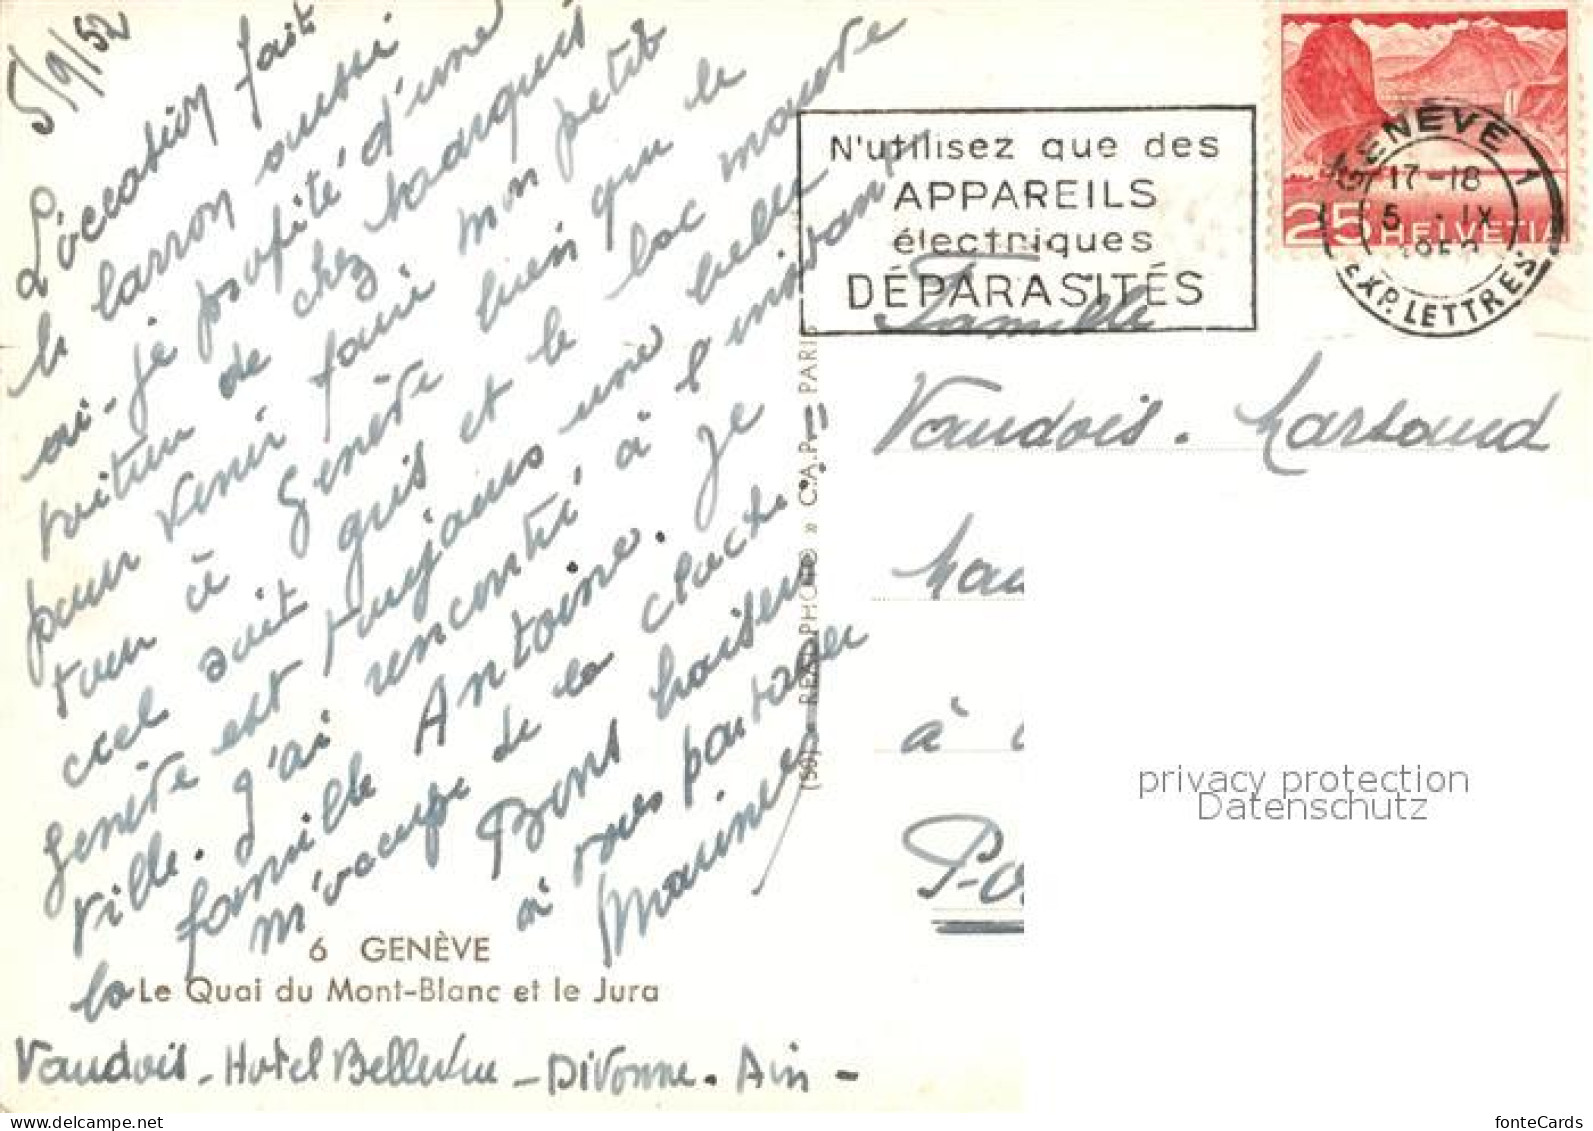 5/9/52
L'occasion fait
le larron aussi
ai-je profité d'une
voiture de chez Marquis
pour venir faire mon petit
tour à Genève bien que le
ciel soit gris et le lac maussade
Genève est toujours une belle
ville. J'ai rencontré, à l'instant,
la famille Antoine. Je
m'occupe de la cloche.
Bons baisers
à vous partager
Maurice
6 GENÈVE
Le Quai du Mont-Blanc et le Jura
Vaudois - Hotel Bellevue - Divonne. Ain -
« REAL-PHOTO » C.A.P. - PARIS
N'utilisez que des
APPAREILS
électriques
DÉPARASITÉS
GENÈVE 1
17-18
5 . IX
1952
EXP. LETTRES
25 HELVETIA
Famille
Vaudois.
à
privacy protection
Datenschutz
fonteCards